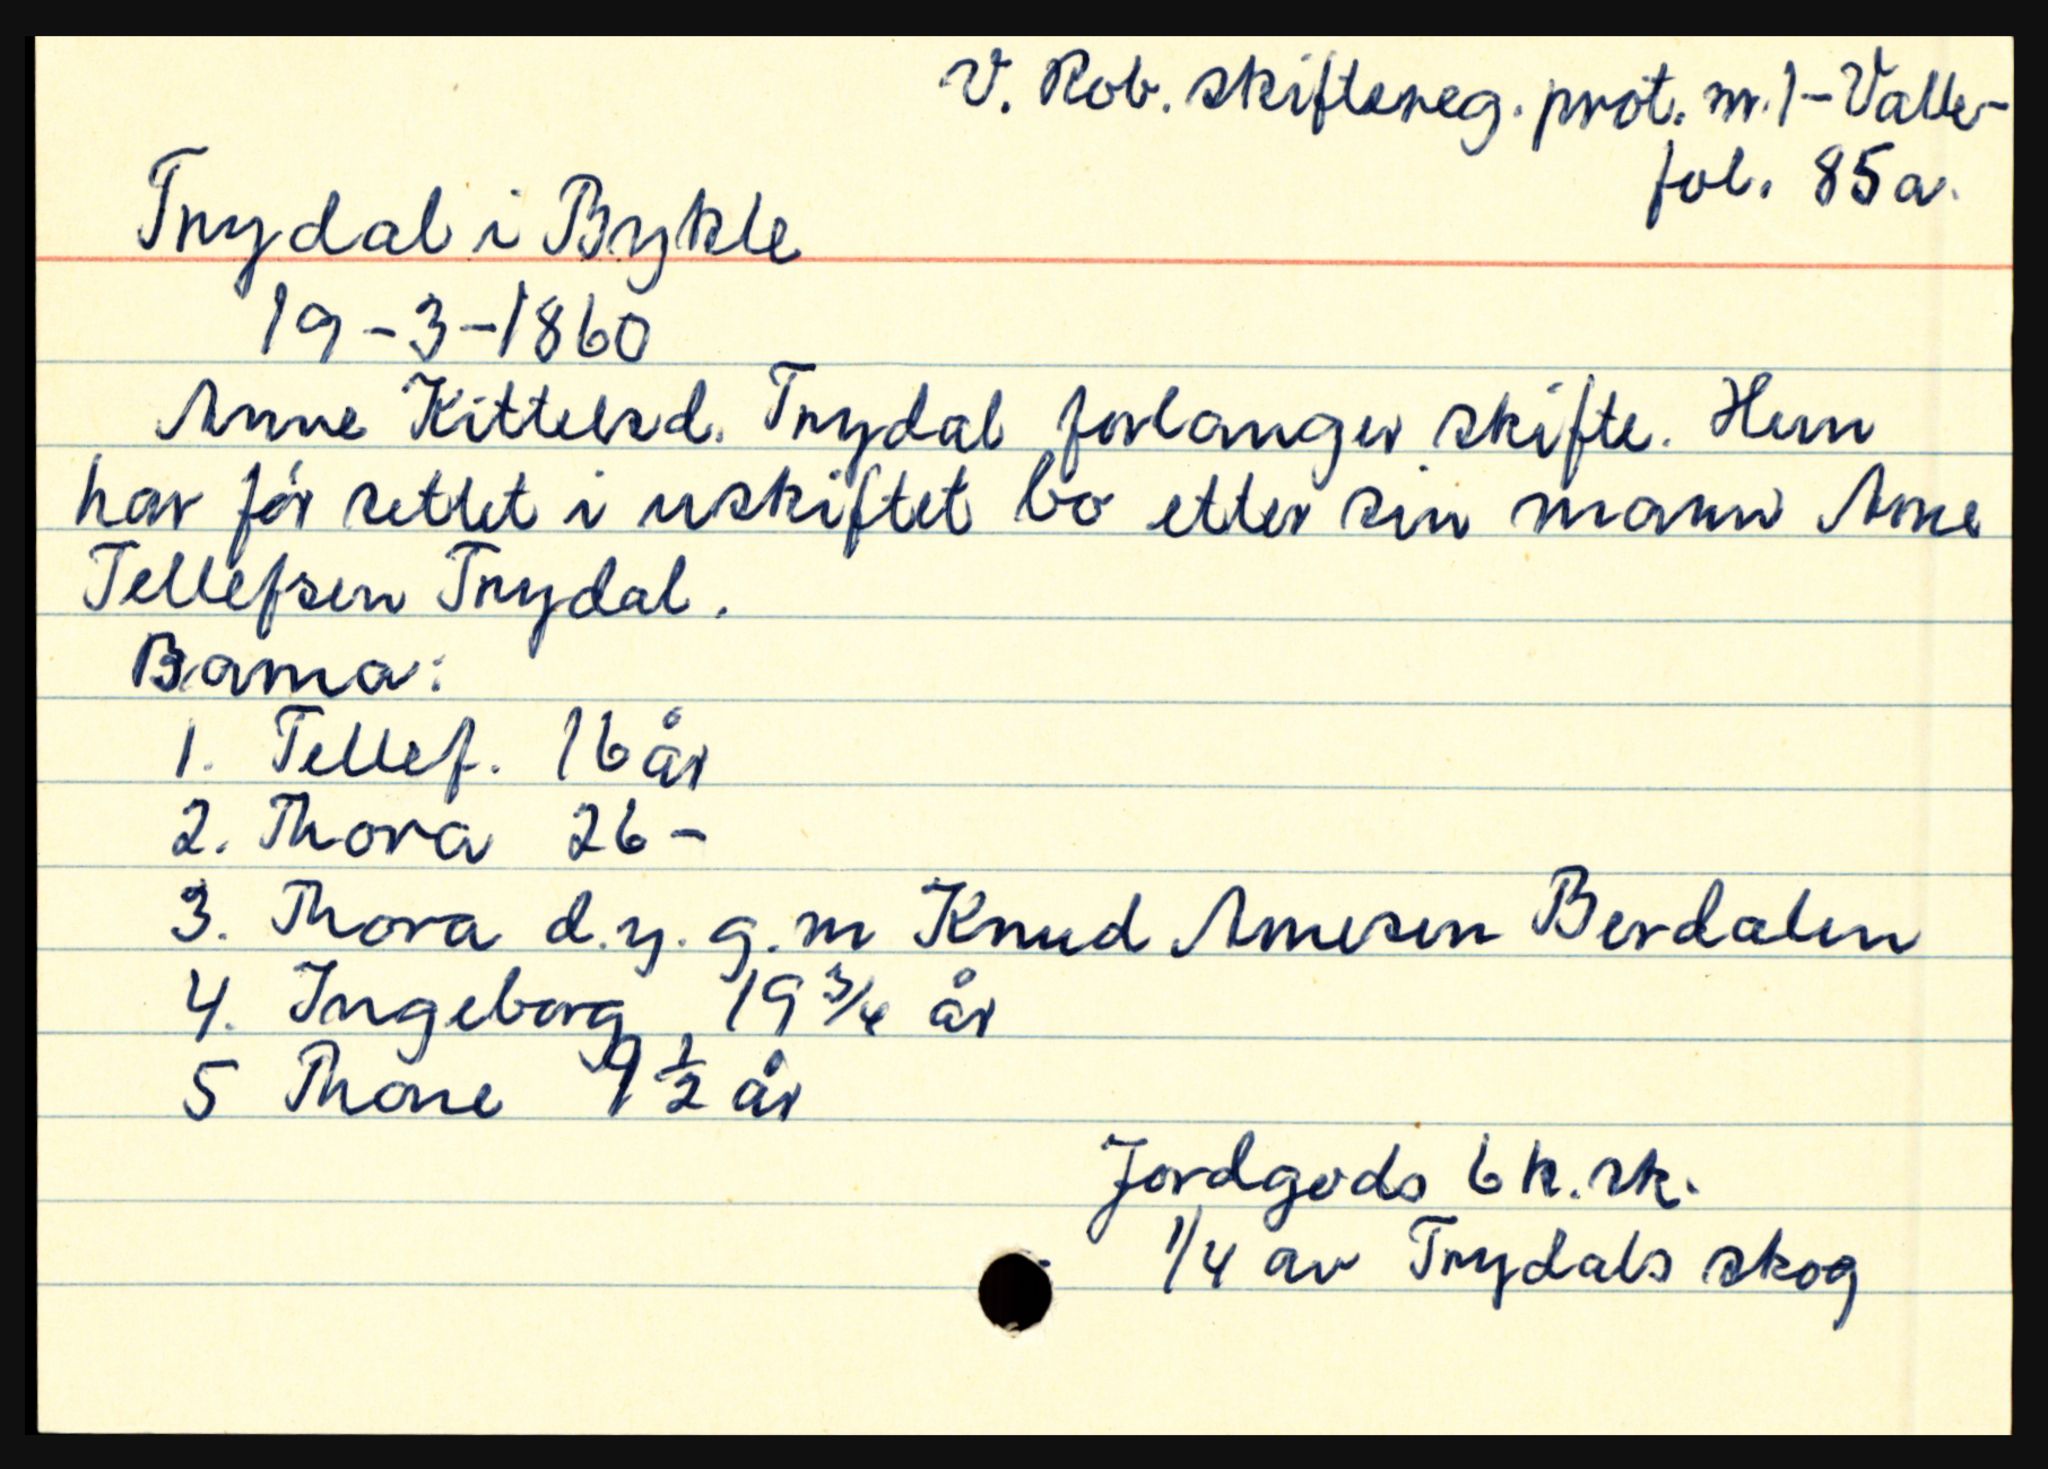 V. Rob. skiftereg. prot. nr. 1 - Valle -
fol. 85a.
Trydal i Bykle
19-3-1860
Anne Kittelsd. Trydal forlanger skifte. Hun
har før settet i uskiftet bo etter sin mann Arne
Tellefsen Trydal.
Barna:
1. Tellef. 16 år
2. Thora 26 -
3. Thora d.y. g.m Knud Arnesen Berdalen
4. Ingeborg, 19 3/4 år
5 Thone 9 1/2 år
Jordgods 6 k. sk.
1/4 av Trydals skog